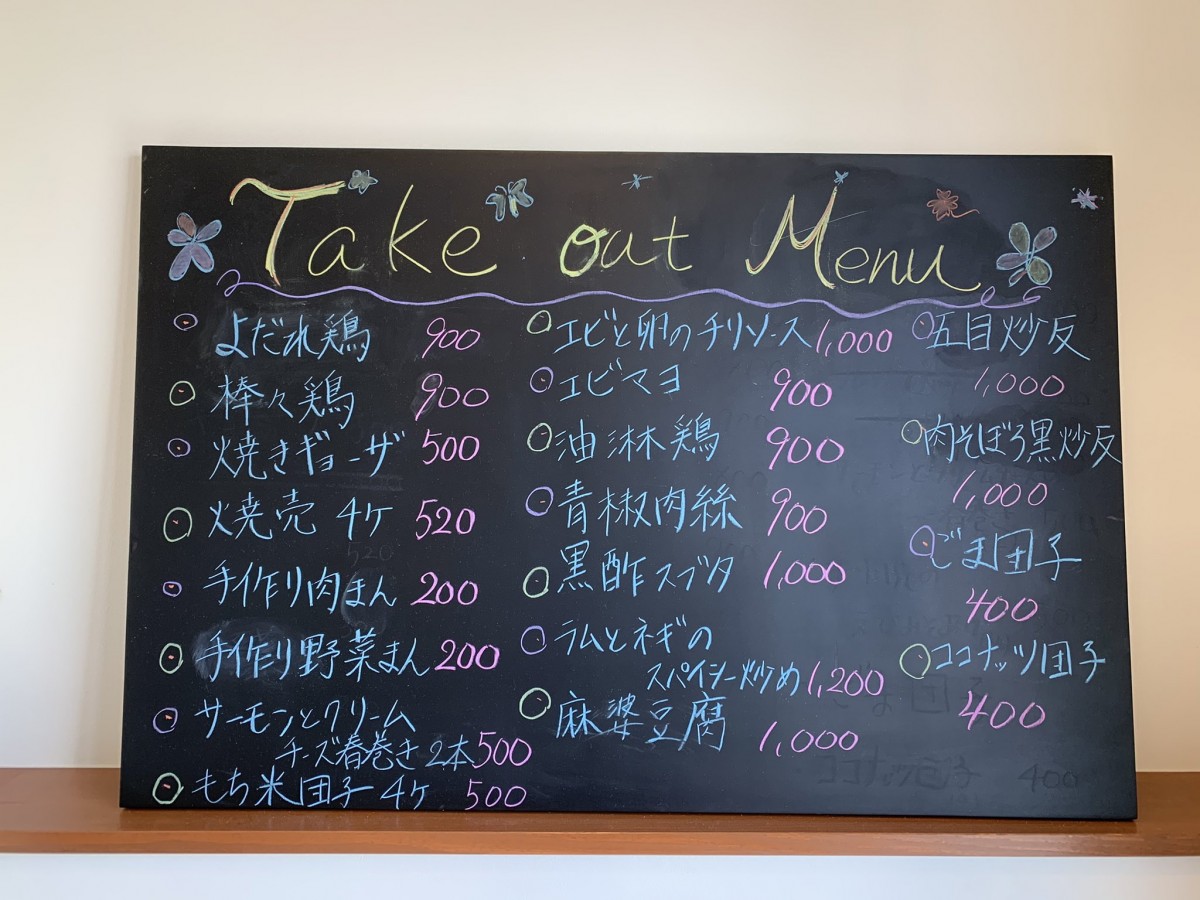 Take out Menu
よだれ鶏 900
棒々鶏 900
焼きギョーザ 500
焼売 4ケ 520
手作り肉まん 200
手作り野菜まん 200
サーモンとクリーム
チーズ春巻き 2本 500
もち米団子 4ケ 500
エビと卵のチリソース 1,000
エビマヨ 900
油淋鶏 900
青椒肉絲 900
黒酢スブタ 1,000
ラムとネギの
スパイシー炒め 1,200
麻婆豆腐 1,000
五目炒反
1,000
肉そぼろ黒炒反
1,000
ごま団子
400
ココナッツ団子
400